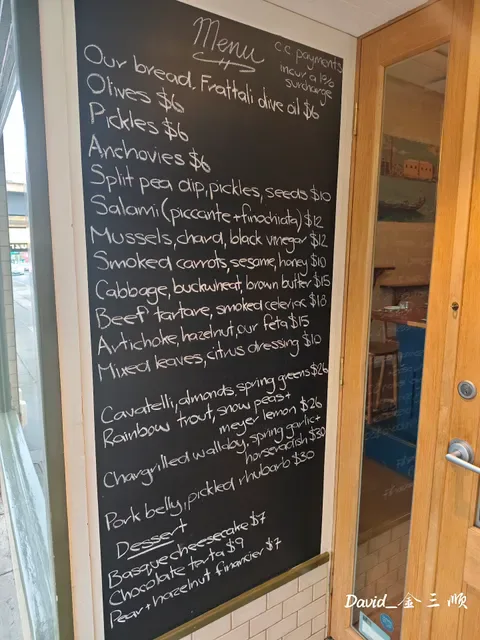 Menu
c.c payments
incur a 1%
surcharge
Our bread, Frattali olive oil $6
Olives $6
Pickles $6
Anchovies $6
Split pea dip, pickles, seeds $10
Salami (piccante + finochiata) $12
Mussels, chard, black vinegar $12
Smoked carrots, sesame, honey $10
Cabbage, buckwheat, brown butter $15
Beef tartare, smoked celeriac $18
Artichoke, hazelnut, our feta $15
Mixed leaves, citrus dressing $10
Cavatelli, almonds, spring greens $26
Rainbow trout, snow peas +
meyer lemon $26
Chargrilled wallaby, spring garlic +
horseradish $30
Pork belly, pickled rhubarb $30
Dessert
Basque cheesecake $7
Chocolate tarta $9
Pear + hazelnut financier $7
David_金三顺